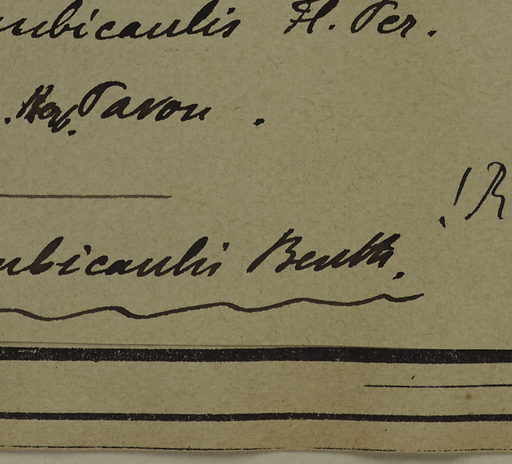 mbicaulis Fl. Per.
. Herb. Pavon .
! R
mbicaulis Benth.